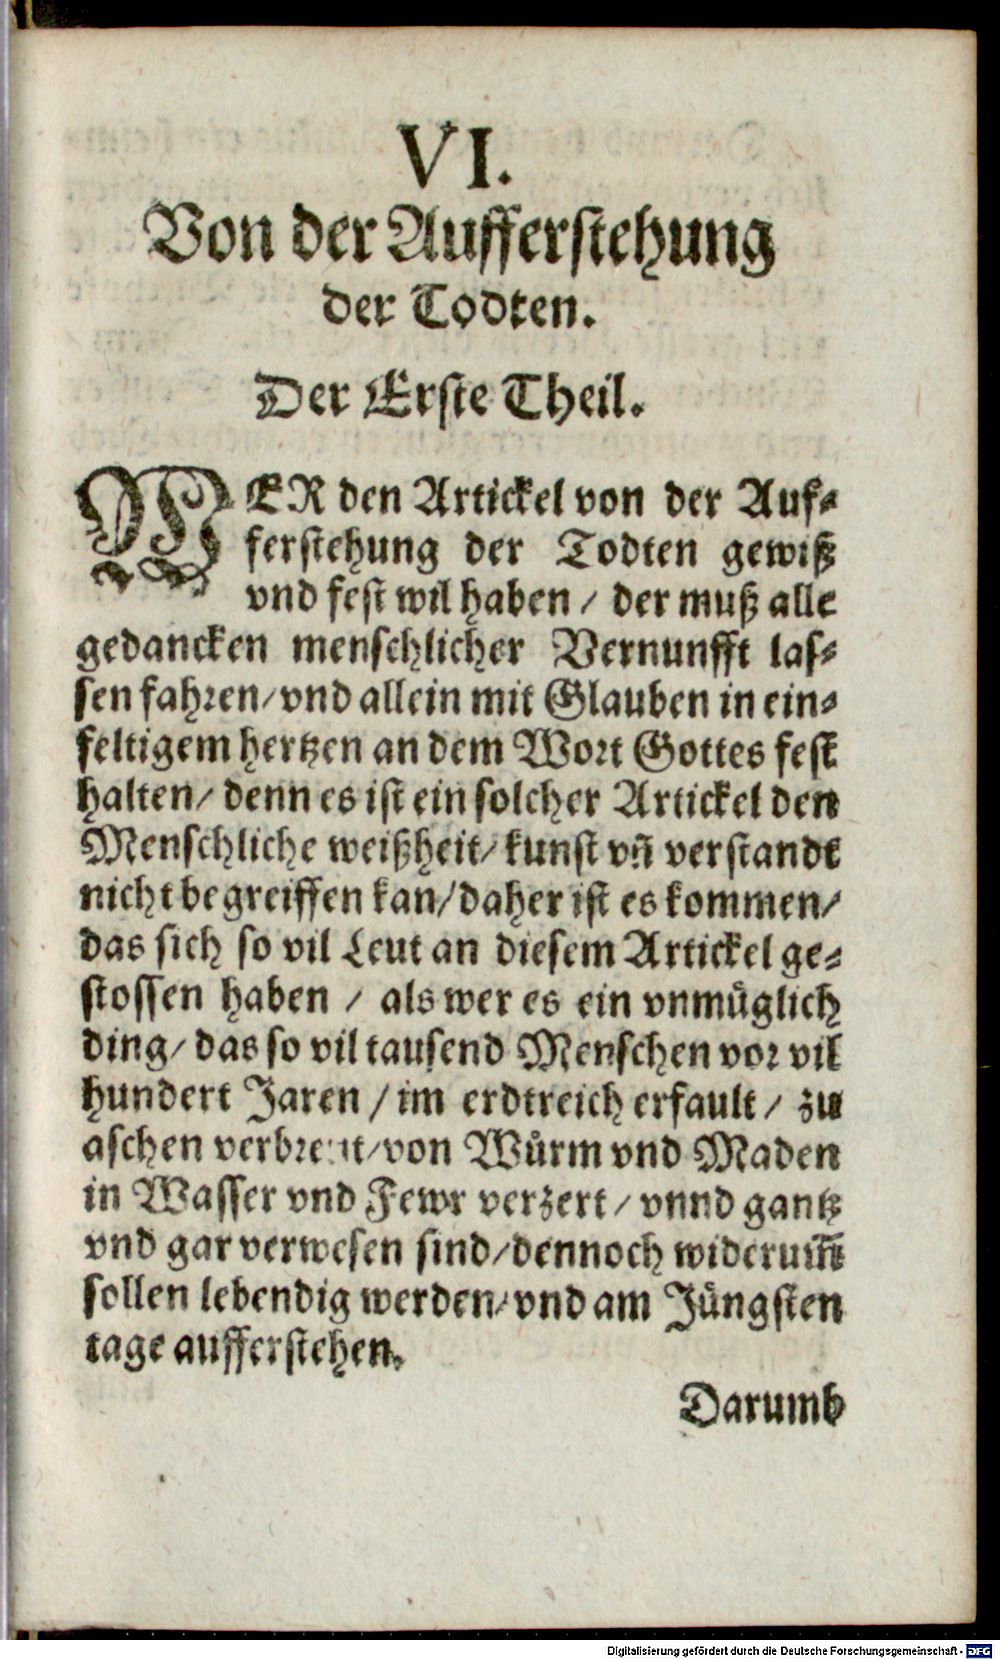 VI.
Von der Aufferstehung
der Todten.
Der Erste Theil.
WER den Artickel von der Auf-
ferstehung der Todten gewiß
vnd fest wil haben / der muß alle
gedancken menschlicher Vernunfft las-
sen fahren/vnd allein mit Glauben in ein-
feltigem hertzen an dem Wort Gottes fest
halten/ denn es ist ein solcher Artickel den
Menschliche weißheit/ kunst vñ verstandt
nicht begreiffen kan/daher ist es kommen/
das sich so vil Leut an diesem Artickel ge-
stossen haben / als wer es ein vnmüglich
ding/ das so vil tausend Menschen vor vil
hundert Jaren / im erdtreich erfault / zu
aschen verbrent/von Würm vnd Maden
in Wasser vnd Fewr verzert / vnnd gantz
vnd gar verwesen sind/dennoch widerum̃
sollen lebendig werden/vnd am Jüngsten
tage aufferstehen.
Darumb
Digitalisierung gefördert durch die Deutsche Forschungsgemeinschaft - DFG